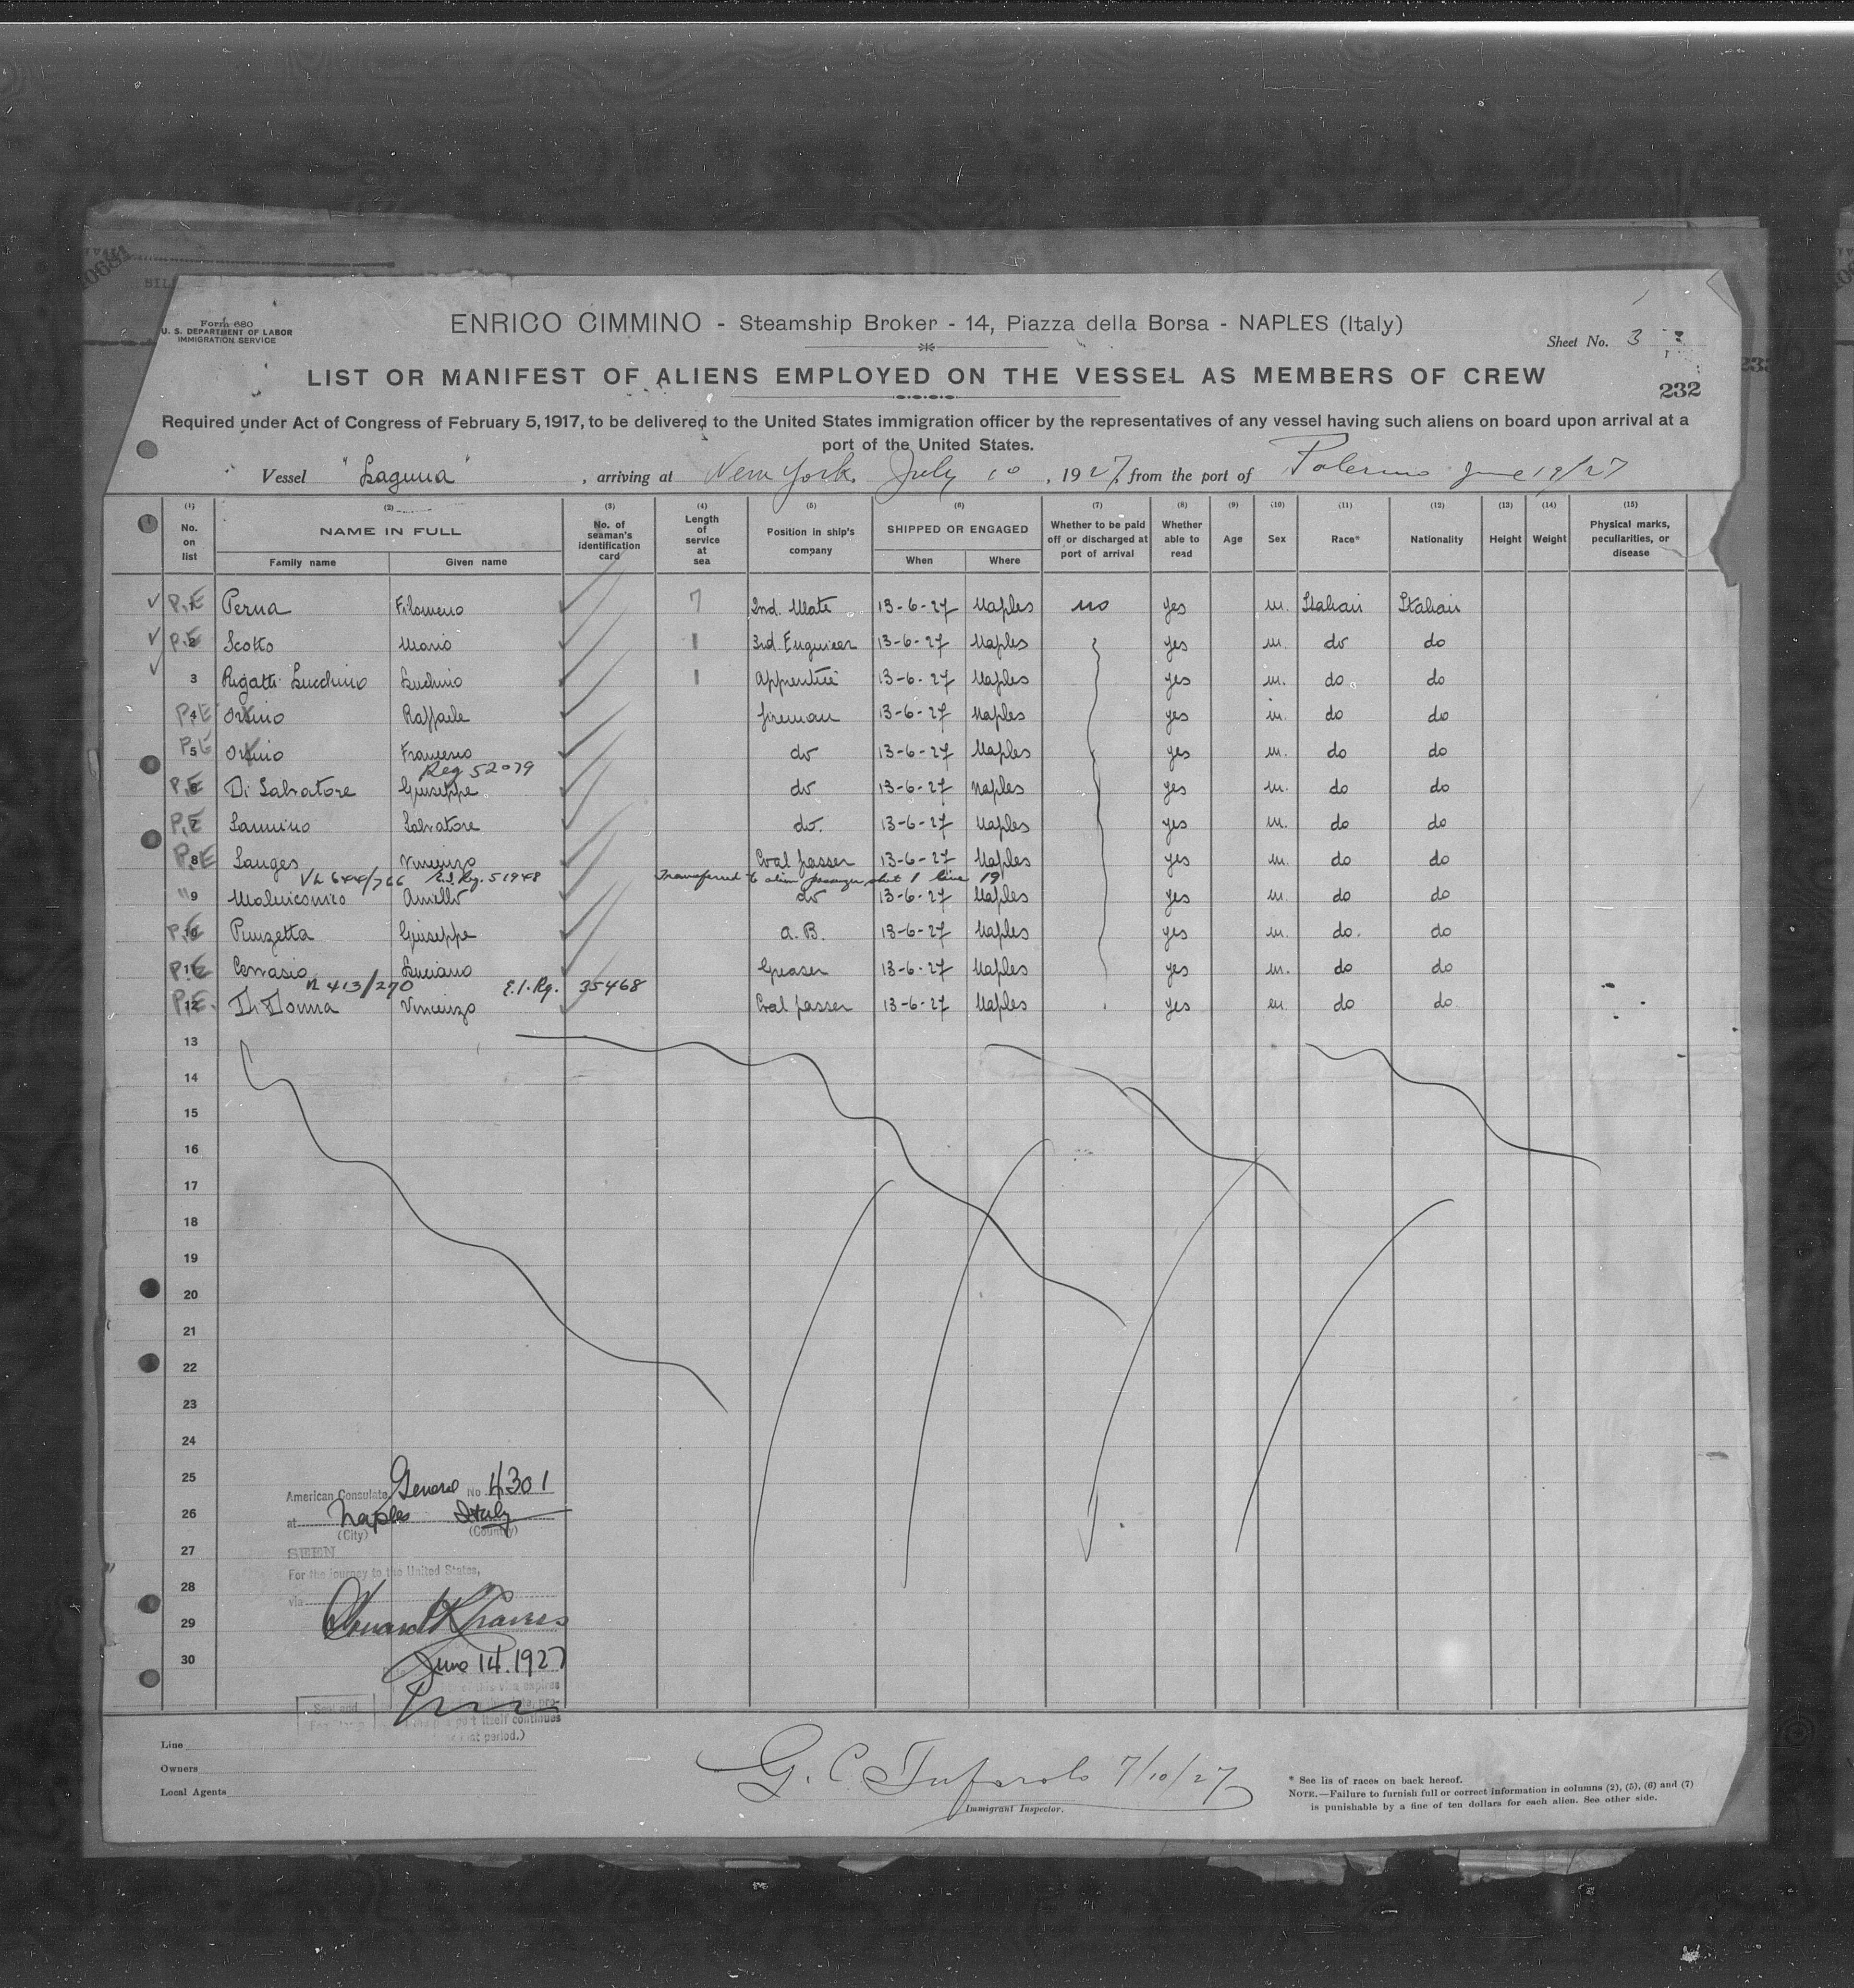 Form 680
U. S. DEPARTMENT OF LABOR
IMMIGRATION SERVICE
ENRICO CIMMINO - Steamship Broker - 14, Piazza della Borsa - NAPLES (Italy)
Sheet No. 3
LIST OR MANIFEST OF ALIENS EMPLOYED ON THE VESSEL AS MEMBERS OF CREW
232
Required under Act of Congress of February 5, 1917, to be delivered to the United States immigration officer by the representatives of any vessel having such aliens on board upon arrival at a
port of the United States.
Vessel "Laguna", arriving at New York, July 10, 1927, from the port of Palermo June 19/27
(1) (2) (3) (4) (5) (6) (7) (8) (9) (10) (11) (12) (13) (14) (15)
No. on list NAME IN FULL No. of seaman's identification card Length of service at sea Position in ship's company SHIPPED OR ENGAGED Whether to be paid off or discharged at port of arrival Whether able to read Age Sex Race* Nationality Height Weight Physical marks, peculiarities, or disease
Family name Given name When Where
P.E Perna Filomeno 7 2nd. Mate 13-6-27 Naples no yes m. Italian Italian
P.E 2 Scotto Mario 1 3rd. Engineer 13-6-27 Naples yes m. do do
3 Rigatti Lucchino Luchino 1 Apprentice 13-6-27 Naples yes m. do do
P.E 4 Raffaele fireman 13-6-27 Naples yes m. do do
P.E 5 Francesco do 13-6-27 Naples yes m. do do
Reg 52079
P.E 6 Di Salvatore Giuseppe do 13-6-27 Naples yes m. do do
P.E 7 Sannino Salvatore do. 13-6-27 Naples yes m. do do
P.E 8 Langes Vincenzo Coal passer 13-6-27 Naples yes m. do do
644/766 E.I. Rg. 51948 Transferred to alien passenger sheet 1 line 19
9 Aniello do 13-6-27 Naples yes m. do do
P.E 10 Punzetta Giuseppe A. B. 13-6-27 Naples yes m. do. do
P.E 11 Cerrasio Luciano Greaser 13-6-27 Naples yes m. do do
413/270 E.I. Rg. 35468
P.E. 12 Di Donna Vincenzo Coal passer 13-6-27 Naples yes m do do
13
14
15
16
17
18
19
20
21
22
23
24
25
26
27
28
29
30
American Consulate General No 4301
at Naples Italy
(City) (Country)
SEEN
For the journey to the United States,
via
June 14. 1927
Line
Owners
Local Agents
G. C. Tufarolo 7/10/27
Immigrant Inspector.
* See lis of races on back hereof.
NOTE.—Failure to furnish full or correct information in columns (2), (5), (6) and (7)
is punishable by a fine of ten dollars for each alien. See other side.